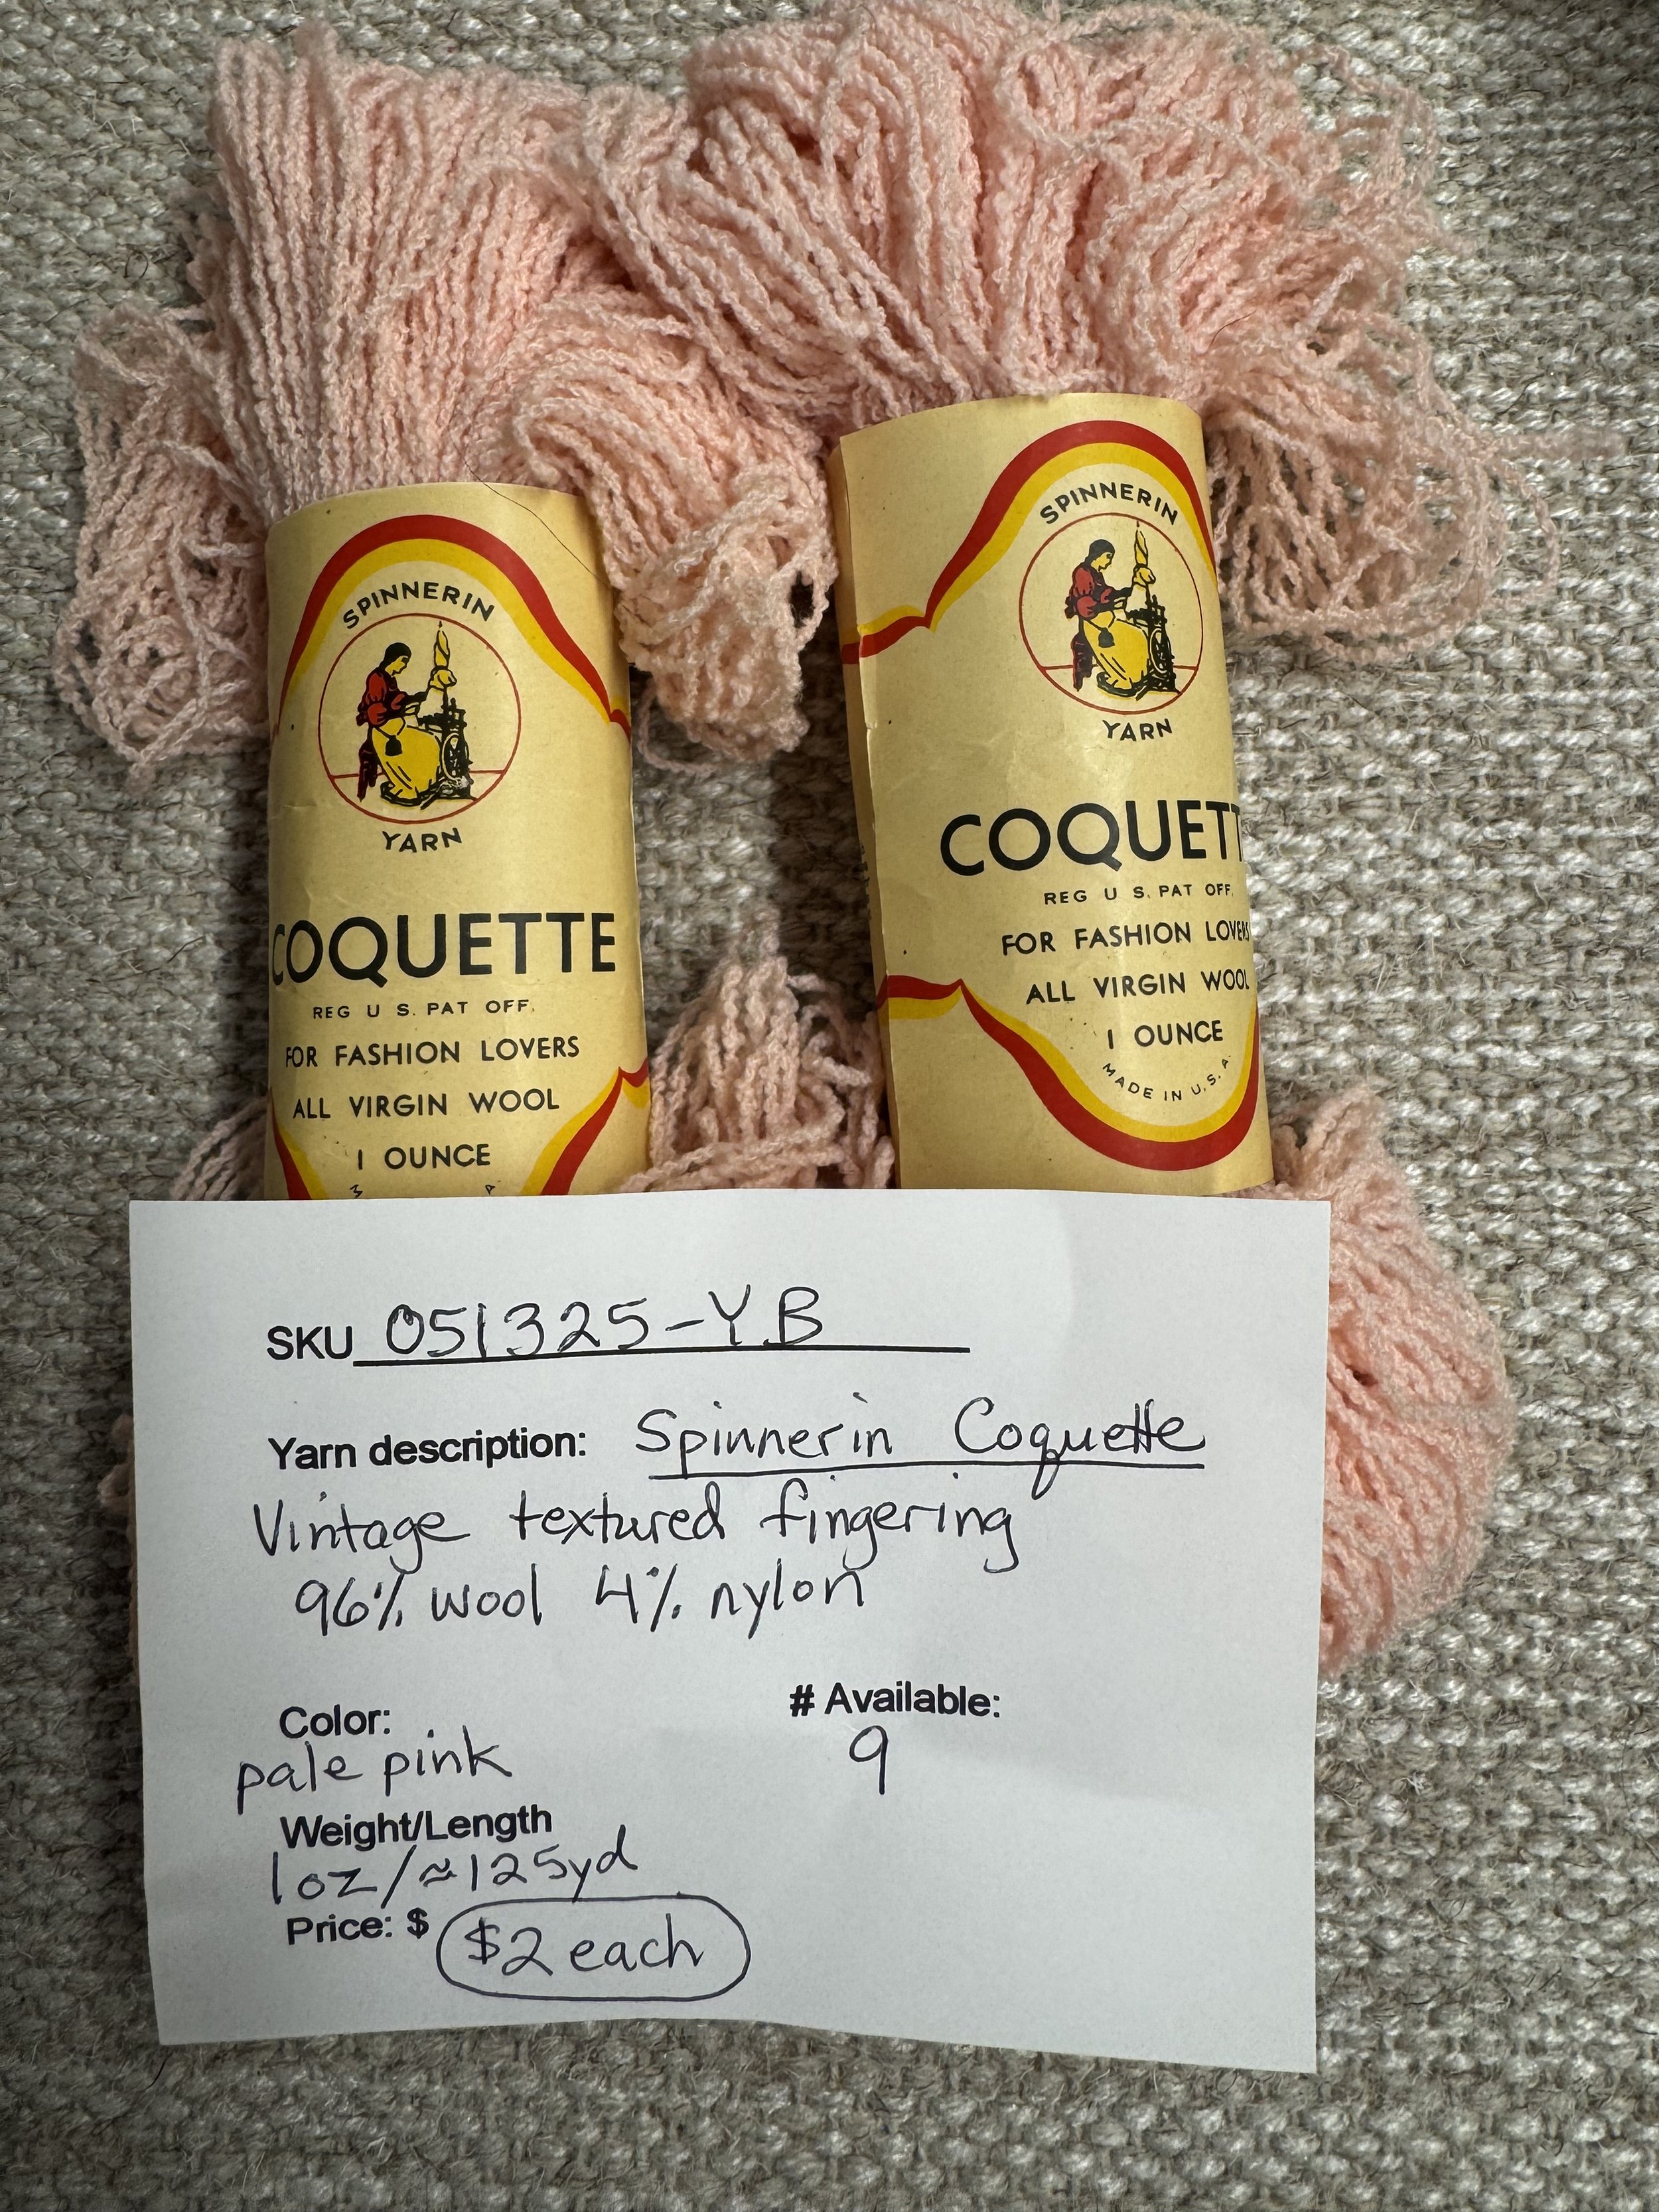 SPINNERIN
YARN
COQUETTE
REG U S. PAT OFF.
FOR FASHION LOVERS
ALL VIRGIN WOOL
1 OUNCE
SPINNERIN
YARN
COQUETT
REG U S. PAT OFF.
FOR FASHION LOVERS
ALL VIRGIN WOOL
1 OUNCE
MADE IN U.S.A.
SKU 051325-YB
Yarn description: Spinnerin Coquette
Vintage textured fingering
96% wool 4% nylon
Color: # Available:
pale pink 9
Weight/Length
1oz/≈125yd
Price: $ $2 each